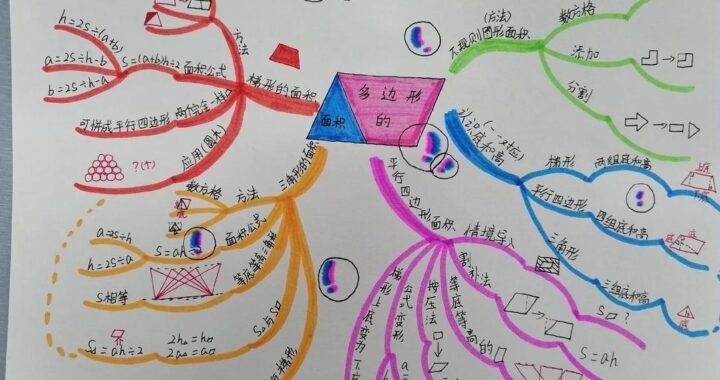 多边形的
面积
梯形的面积
方法
面积公式
S=(a+b)h÷2
h=2S÷(a+b)
a=2S÷h-b
b=2S÷h-a
两个完全一样
可拼成平行四边形
应用(圆木)
?(个)
(方法)
不规则图形面积
数方格
添加
分割
认识底和高
(一一对应)
梯形
两组底和高
上底
平行四边形
四组底和高
底
三角形
三组底和高
底
三角形的面积
方法
数方格
面积公式
S=ah÷2
a=2S÷h
h=2S÷a
等底等高三角形
S相等
S△与S▱
2h△=h▱
2a△=a▱
S△=ah÷2
平行四边形面积
情境导入
S▱?
割补法
S=ah
等底等高的
按压法
公式变形
a=
h=
梯形上底变为